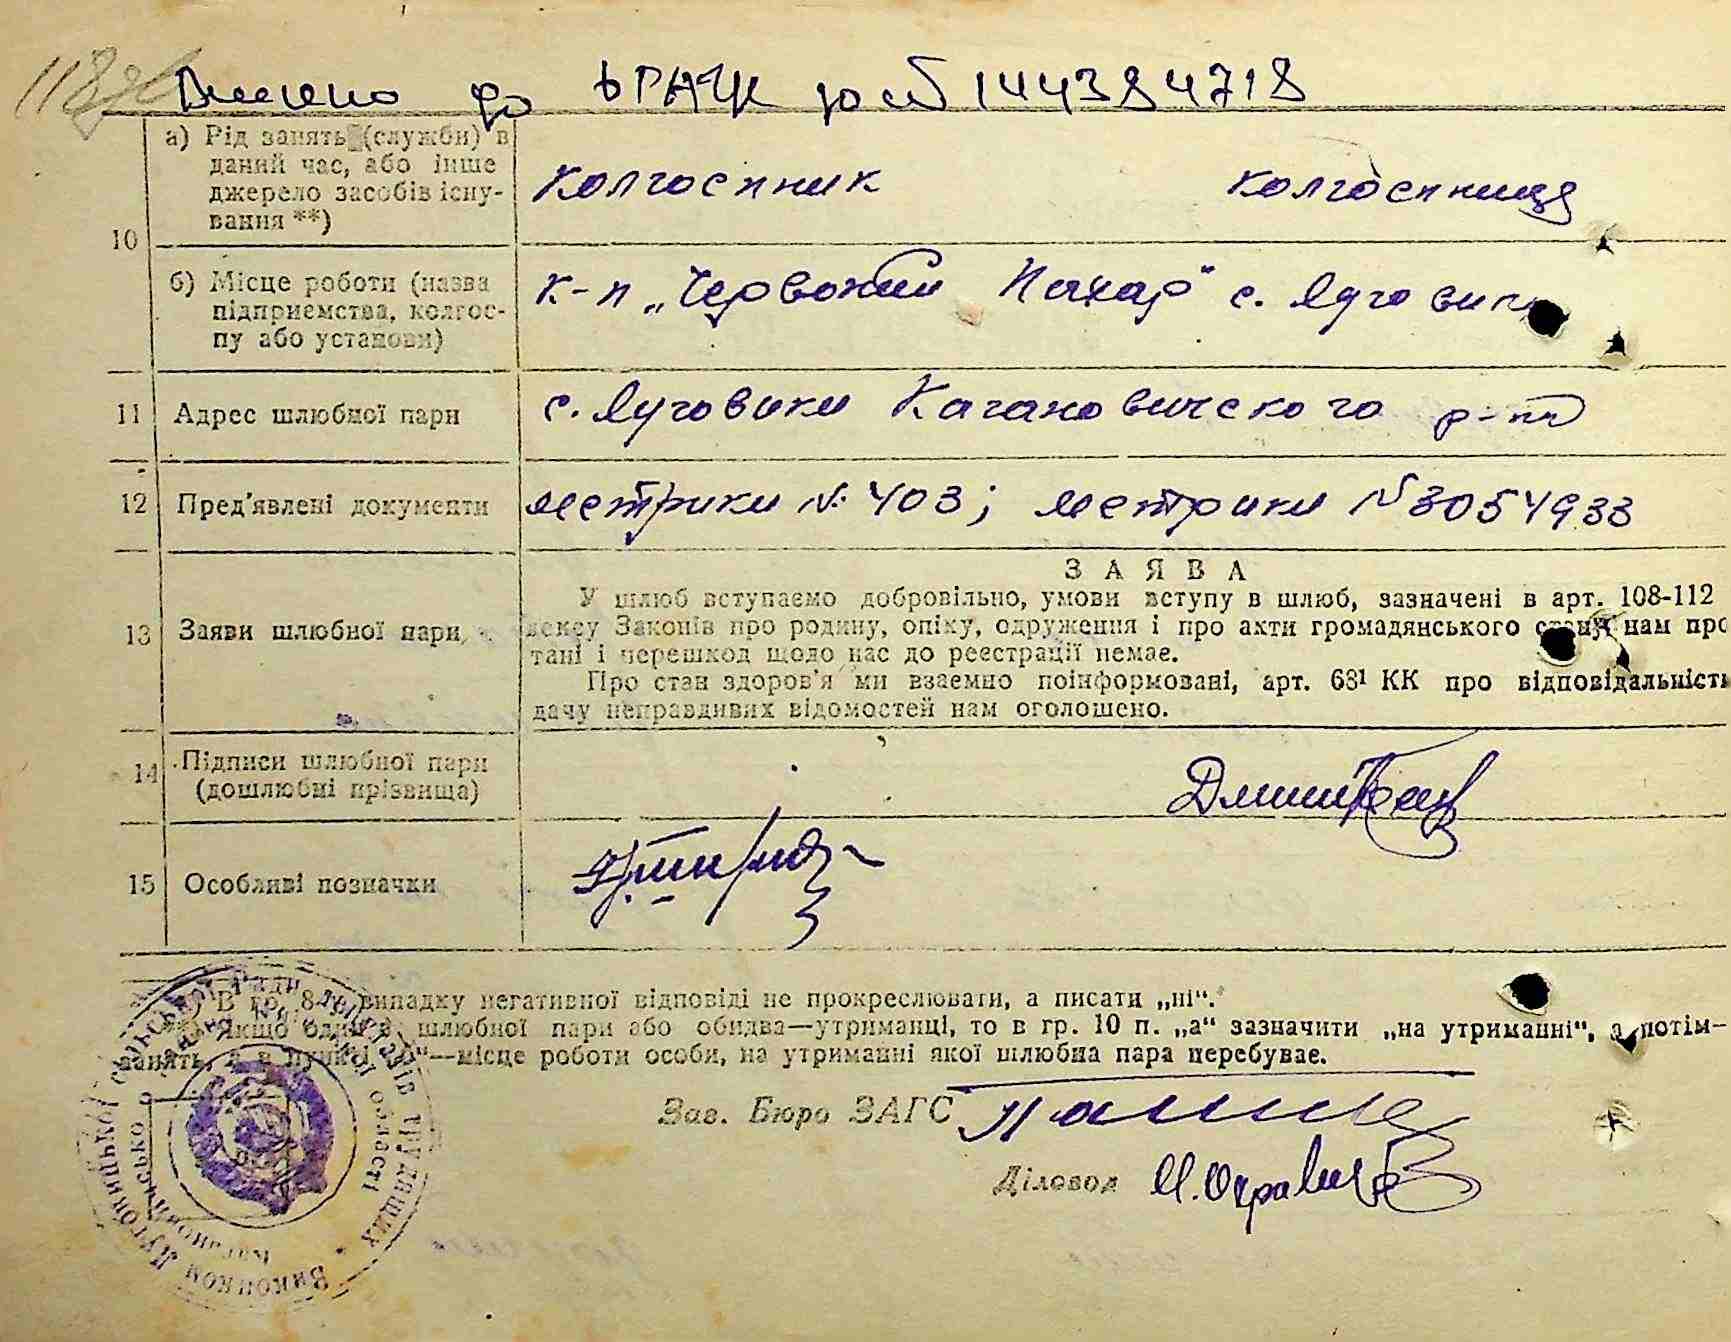 Внесено до ДРАЦС за № 144384718
10
а) Рід занять (служби) в
даний час, або інше
джерело засобів існу-
вання **)
колгоспник колгоспниця
б) Місце роботи (назва
підприємства, колгос-
пу або установи)
к-п „Червоний Пахар" с. Луговики
11 Адрес шлюбної пари с. Луговики Кагановичского р-на
12 Пред'явлені документи метрики № 403; метрики № 3054933
13 Заяви шлюбної пари
ЗАЯВА
У шлюб вступаємо добровільно, умови вступу в шлюб, зазначені в арт. 108-112
дексу Законів про родину, опіку, одруження і про акти громадянського стану нам про
тані і перешкод щодо нас до реєстрації немає.
Про стан здоров'я ми взаємно поінформовані, арт. 68¹ КК про відповідальність
дачу неправдивих відомостей нам оголошено.
14 Підписи шлюбної пари
(дошлюбні прізвища)
15 Особливі позначки
В гр. 8 випадку негативної відповіді не прокреслювати, а писати „ні".
Якщо один з шлюбної пари або обидва—утриманці, то в гр. 10 п. „а" зазначити „на утриманні", а потім—
занять, а в пункті „б"—місце роботи особи, на утриманні якої шлюбна пара перебуває.
Зав. Бюро ЗАГС
Діловод
Виконком Луговицької сільської Ради депутатів трудящих
області